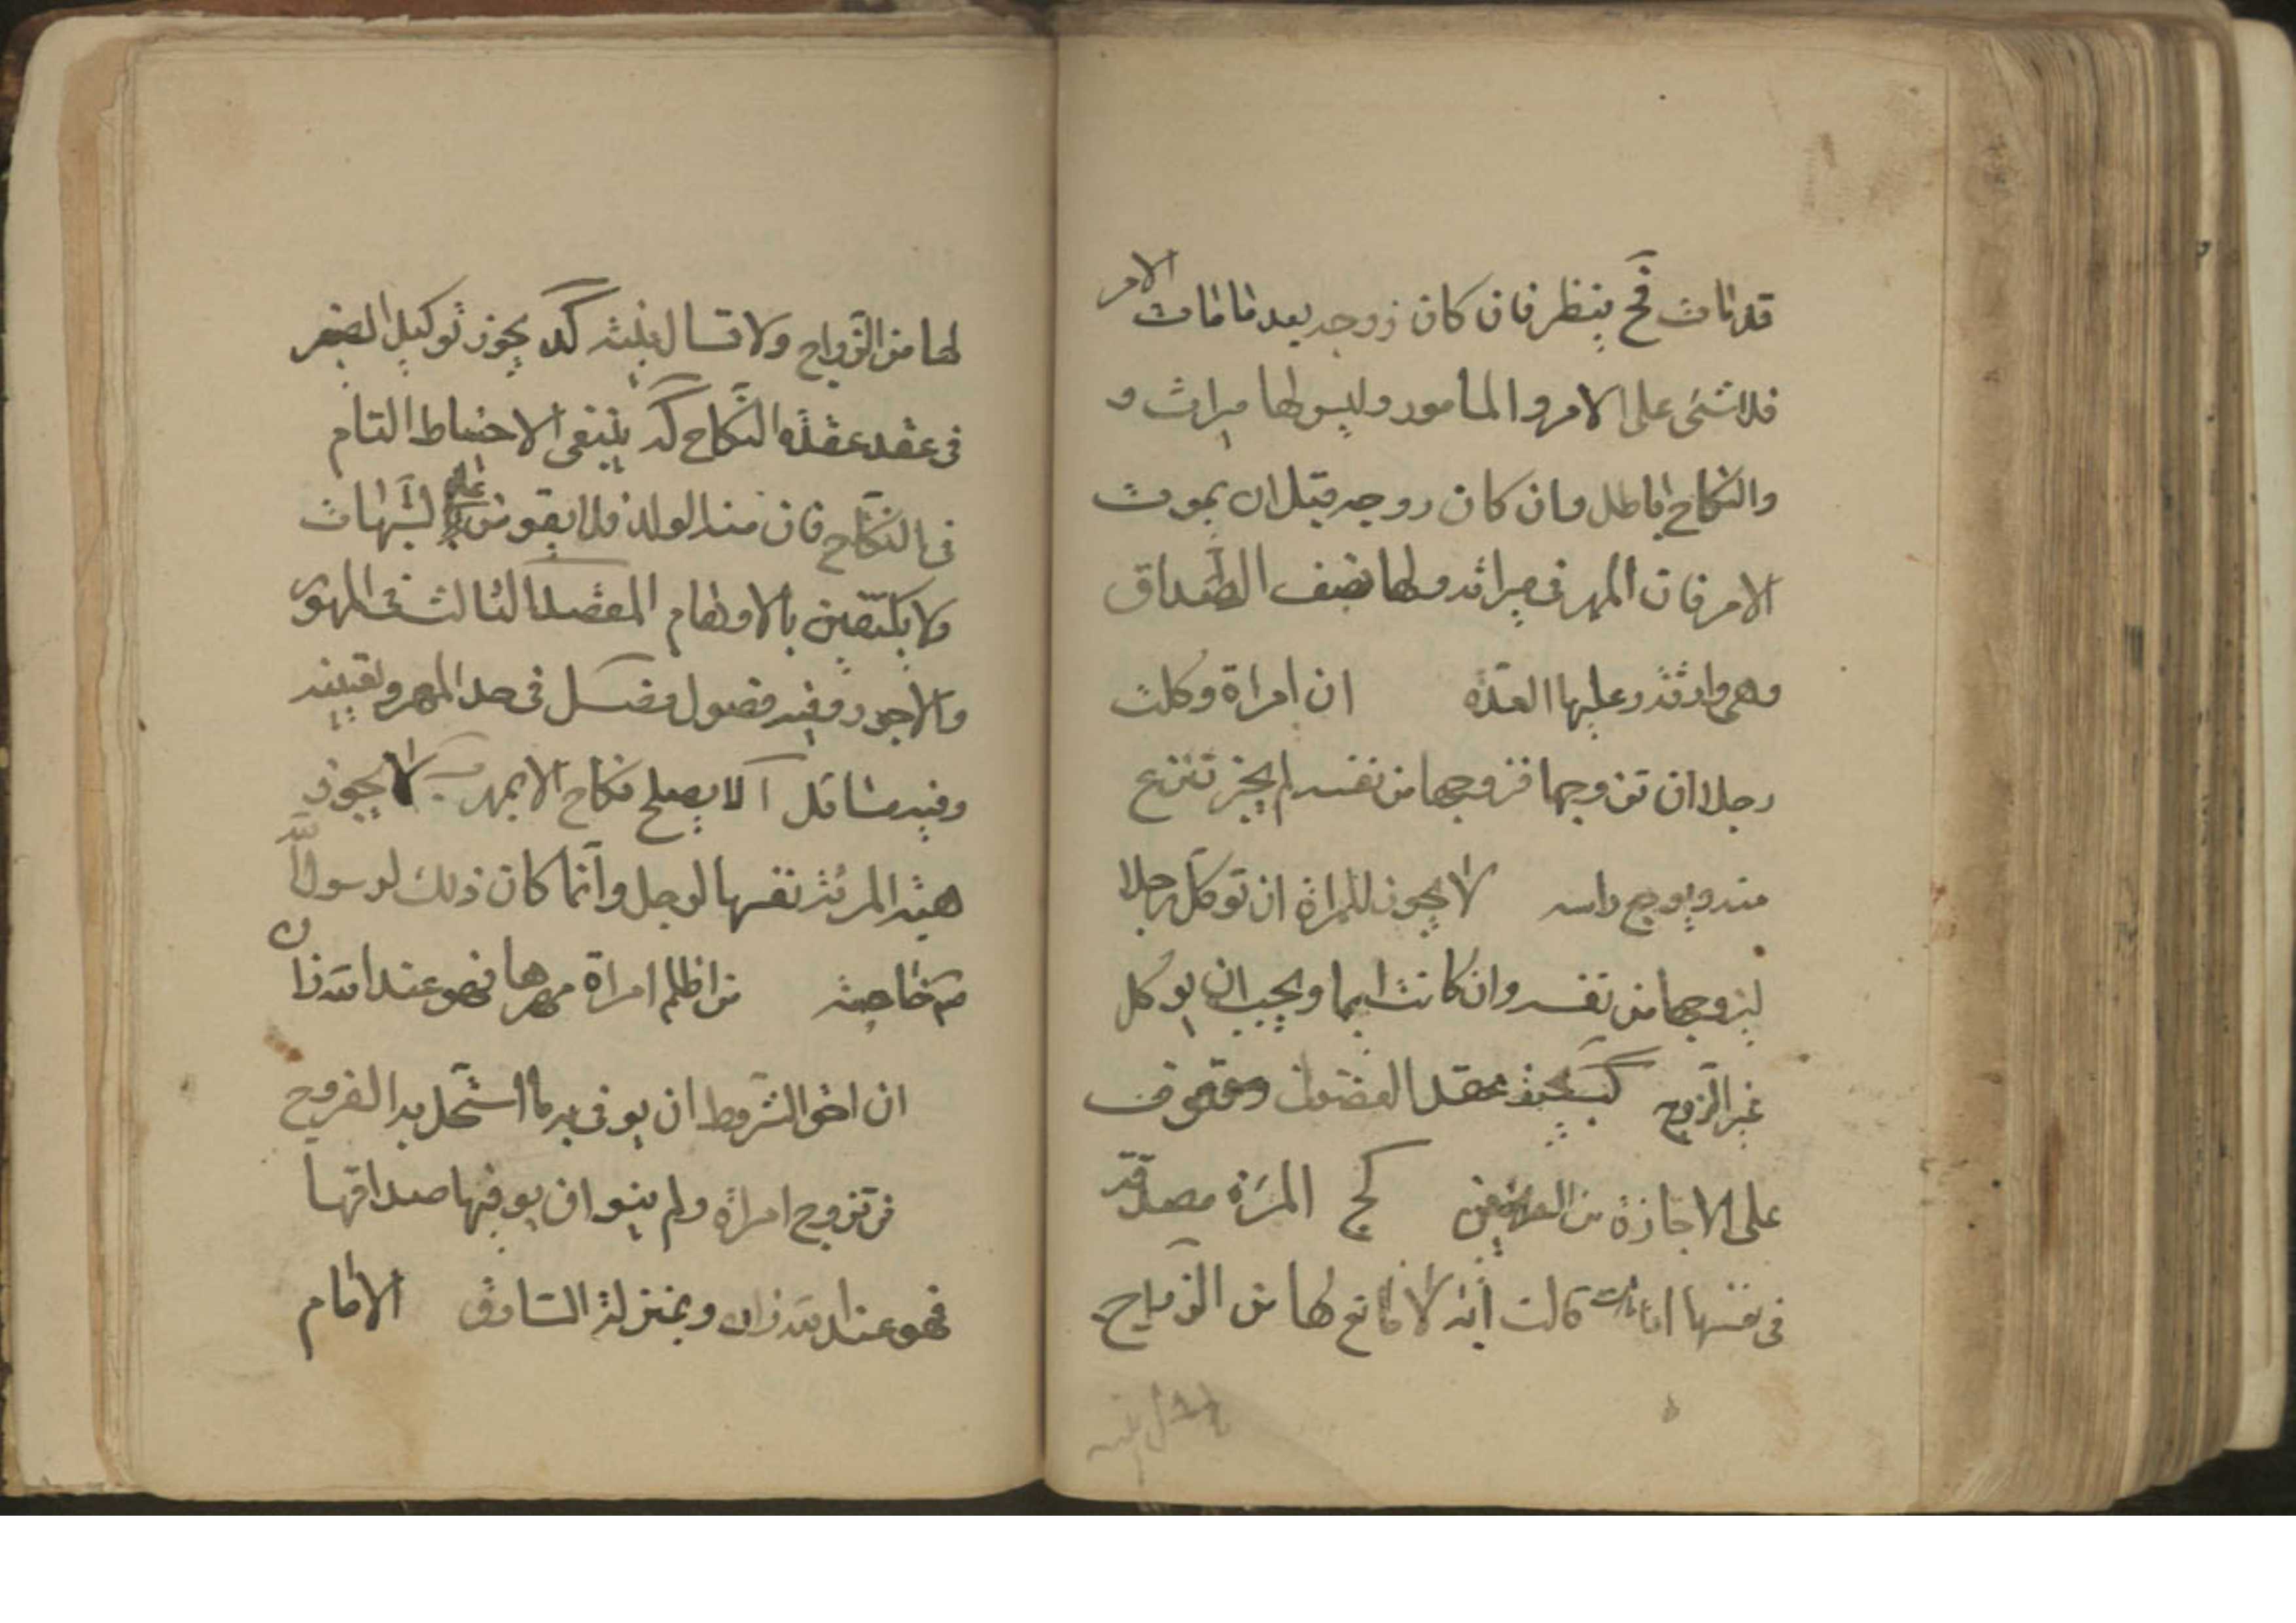 قد مات فح ينظر فان كان زوجه بعد ما مات الامر
فلا شئ على الامر و المامور وليس لها ميراث و
والنكاح باطل وان كان زوجه قبل ان يموت
الامر فان المهر فى ميراثه ولها نصف الصداق
وهى وارثة وعليها العدة ان امراة وكلت
رجلا ان تزوجها فزوجها من نفسه لم يجز تنزع
منه ويوجع راسه لا يجوز للمراة ان توكل رجلا
ليزوجها من نفسه وان كانت ايما ويجب ان يوكل
غير الزوج عقد الفضولى وموقوف
على الاجازة من المراة مصدقة
فى نفسها اما قالت انه لا مانع لها من الزواج
لها من الزواج ولا تسال يجوز توكيل الصغير
فى عقد عقدة النكاح كد ينبغى الاحتياط التام
فى النكاح فان منه الولد فلا على الشبهات
ولا يكتفين بالاوهام المقصد الثالث فى المهور
والاجور وفيه فصول فصل فى حد المهر
وفيه مسائل آ لا يصلح نكاح الا بمهر ب لا يجوز
هبة المرئة نفسها لرجل وانما كان ذلك لرسول الله
ص خاصة من ظلم امراة مهرها فهو عند الله زان
ان احق الشروط ان يوفى به ما استحل به الفروج
من تزوج امراة ولم ينو ان يوفيها صداقها
فهو عند الله زان وبمنزلة السارق الامام